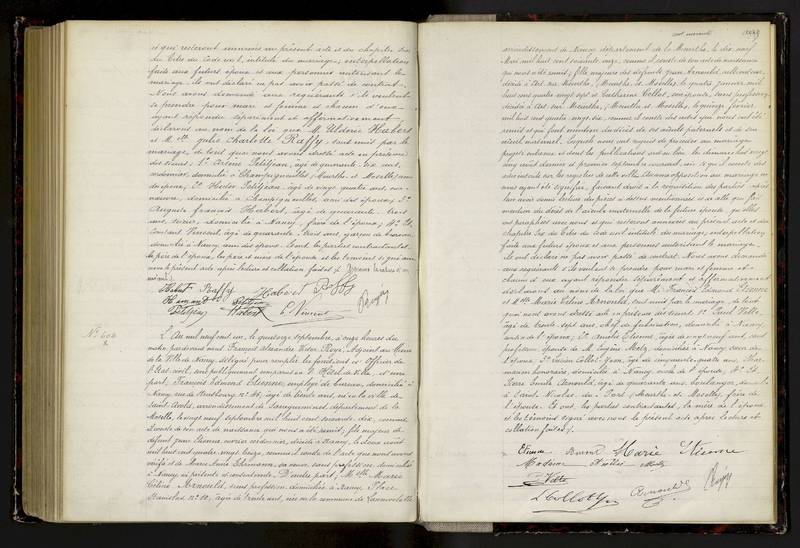 et qui resteront annexées au présent acte et du chapitre six
du Titre du Code civil, intitulé du mariage; interpellation
faite aux futurs époux et aux personnes autorisant le
mariage, ils ont déclaré ne pas avoir passé de contrat.
Nous avons demandé aux requérants s'ils veulent
se prendre pour mari et femme et chacun d'eux
ayant répondu séparément et affirmativement
déclarons au nom de la loi que M. Ulderic Habert
et Mlle Julie Charlotte Raffy, sont unis par le
mariage, de tout quoi nous avons dressé acte en présence
des sieurs: 1° Arsène Petitjean, âgé de quarante six ans,
cordonnier, domicilié à Champigneulles (Meurthe et Moselle) ami
du époux, 2° Hector Petitjean, âgé de vingt quatre ans,
domicilié à Champigneulles, ami des époux, 3°
Auguste François Habert, âgé de quarante trois
ans, domicilié à Nancy, frère de l'époux, 4° Et
Constant Vincent, âgé de quarante trois ans, garçon de bureau,
domicilié à Nancy, ami des époux. Et ont les parties contractantes
le père de l'époux, les père et mère de l'épouse et les témoins signé avec
nous le présent acte après lecture et collation faites
Habert Raffy Habert Raffy
Petitjean Habert C. Vincent
N° 604
L'An mil neuf cent un, le quatorze septembre, à onze heures du
matin, pardevant nous François Alexandre Victor Adjoint au Maire
de la Ville de Nancy, délégué pour remplir les fonctions d'Officier de
l'Etat-civil, sont publiquement comparus en l'Hôtel de Ville, d'une
part, François Edmond Etienne, employé de bureau, domicilié à
Nancy, rue de Strasbourg n° âgé de trente ans, né en la ville de
Saint Avold, arrondissement de Sarreguemines, département de la
Moselle, le vingt neuf septembre mil huit cent soixante dix, comme
il conste de son acte de naissance qui nous a été remis; fils majeur de
défunt Jean Etienne, ouvrier cordonnier, décédé à Nancy, le deux août
mil huit cent quatre vingt treize, comme il conste de l'acte que nous avons
vérifié et de Marie Louise sa veuve, sans profession, domiciliée
à Nancy, ici présente et consentante. D'autre part, Mlle Marie
Céline Arnould, sans profession, domiciliée à Nancy, Place
Stanislas n° 10, âgée de trente ans, née en la commune de Laneuvelle
arrondissement de Nancy, département de la Meurthe, le dix neuf
Mai mil huit cent soixante onze, comme il conste de son acte de naissance
qui nous a été remis; fille majeure des défunts Jean Arnould,
décédé à Art sur Meurthe, (Meurthe et Moselle), le quatre janvier mil
huit cent quatre vingt sept et Catherine Collot, son épouse, sans profession,
décédée à Art sur Meurthe, (Meurthe et Moselle), le quinze février
mil huit cent quatre vingt dix, comme il conste des actes qui nous ont été
remis et qui font mention du décès de ses aïeuls paternels et de son
aïeul maternel. Lesquels nous ont requis de procéder au mariage
projeté entre eux et dont les publications ont eu lieu les dimanches vingt
cinq août dernier et premier septembre courant, ainsi qu'il conste des
actes inscrits sur les registres de cette ville. Aucune opposition au mariage ne
nous ayant été signifiée, faisant droit à la réquisition des parties après
leur avoir donné lecture des pièces ci dessus mentionnées et de celle qui fait
mention du décès de l'aïeule maternelle de la future épouse, qu'elles
ont paraphées avec nous et qui resteront annexées au présent acte et du
chapitre six du Titre du Code civil intitulé du mariage, interpellation
faite aux futurs époux et aux personnes autorisant le mariage,
ils ont déclaré ne pas avoir passé de contrat. Nous avons demandé
aux requérants s'ils veulent se prendre pour mari et femme et
chacun d'eux ayant répondu séparément et affirmativement
déclarons au nom de la loi que M. François Edmond Etienne
et Mlle Marie Céline Arnould, sont unis par le mariage, de tout
quoi nous avons dressé acte en présence des sieurs: 1° Paul
âgé de trente sept ans, chef de fabrication, domicilié à Nancy,
de l'époux, 2° Emile Etienne, âgé de vingt neuf ans,
domicilié à Nancy,
l'époux, 3° Lucien Collot, âgé de cinquante quatre ans,
honoraire, domicilié à Nancy, oncle de l'épouse, 4° Et
Emile Arnould, âgé de quarante ans, boulanger, domicilié
à Saint Nicolas du Port, (Meurthe et Moselle), frère de
l'épouse. Et ont, les parties contractantes, la mère de l'époux
et les témoins signé avec nous le présent acte après lecture et
collation faites.
Etienne Marie Etienne
L. Collot Arnould